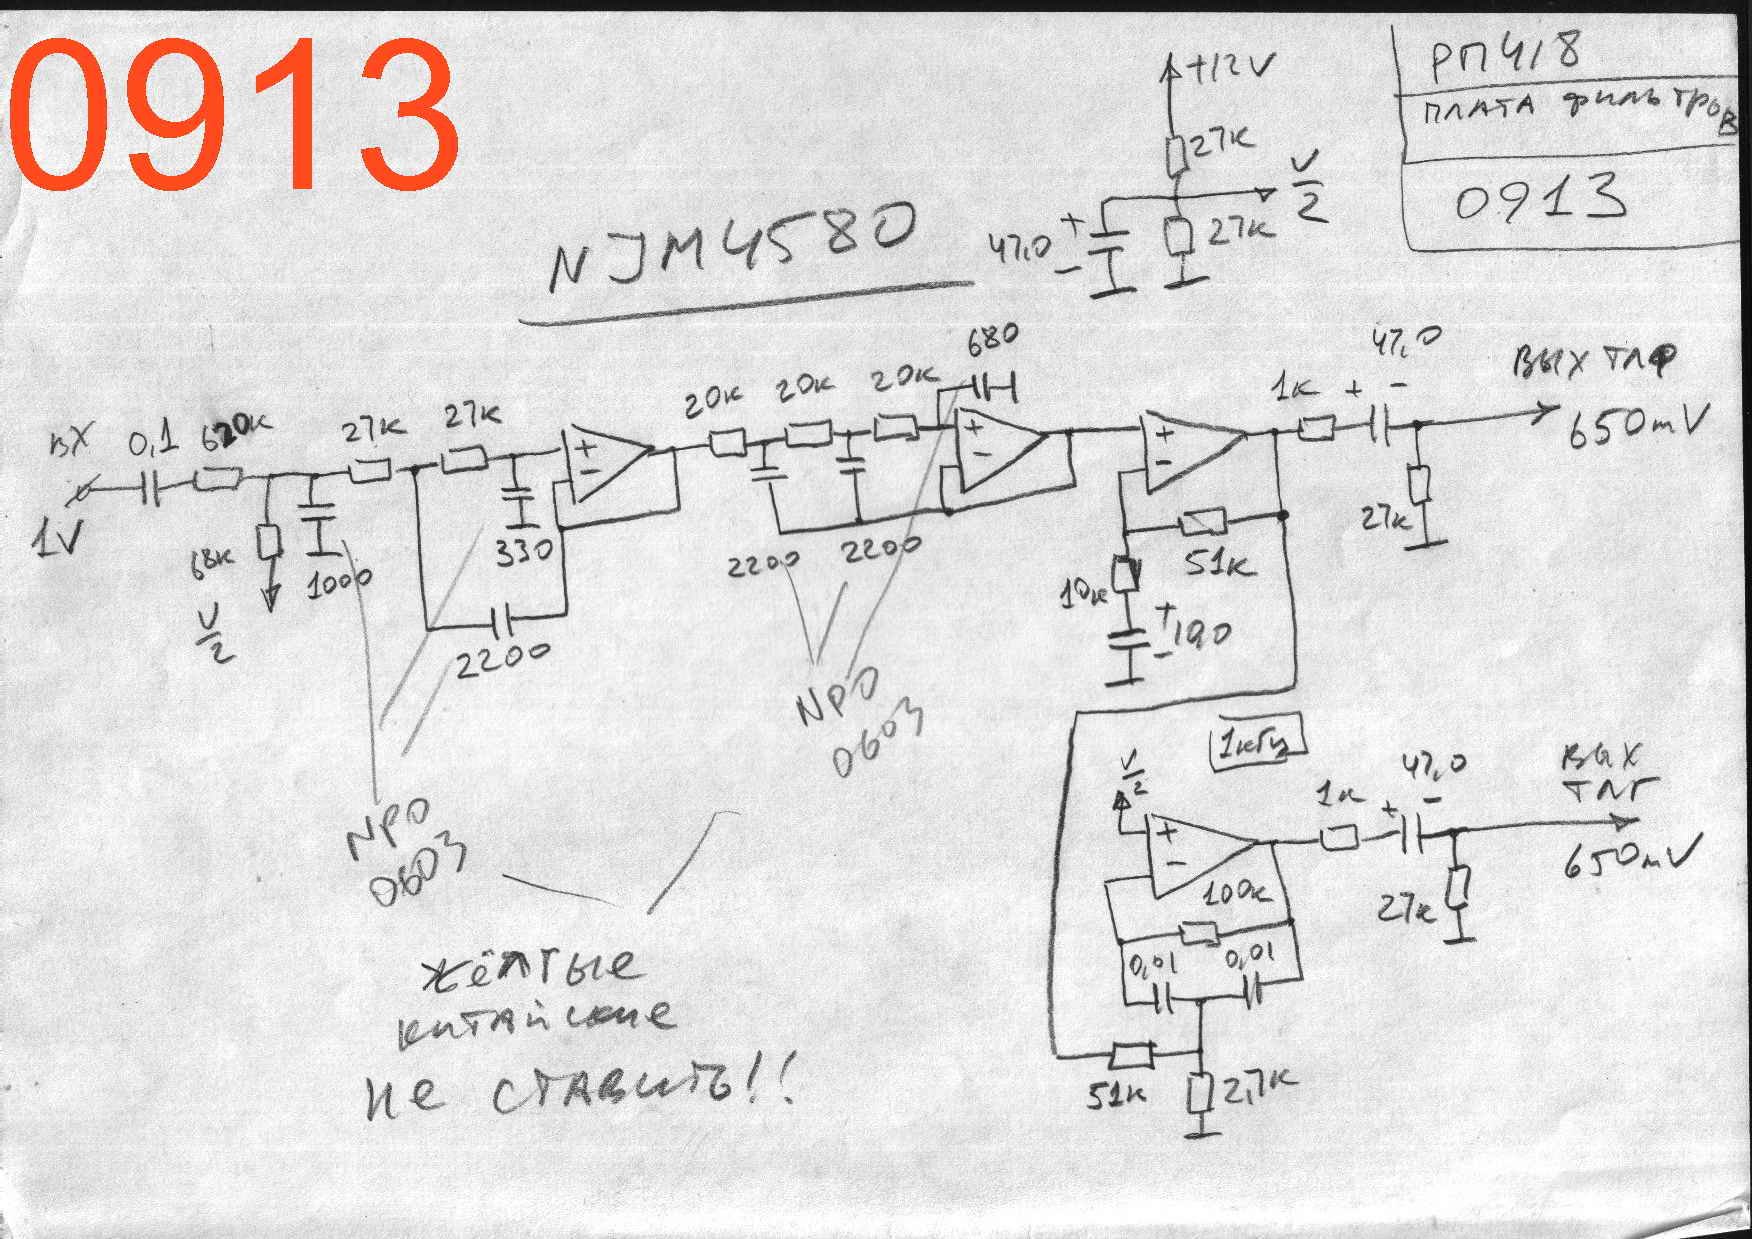 0913
РП418
ПЛАТА ФИЛЬТРОВ
0913
+12V
27к
V/2
47,0
+
-
27к
NJM4580
вх
0,1
620к
27к
27к
+
-
20к
20к
20к
680
+
-
+
-
1к
+
47,0
-
ВЫХ ТЛФ
650mV
1V
68к
V/2
1000
330
2200
2200
2200
51к
10к
+
10,0
-
27к
NPO
0603
NPO
0603
1кГц
V/2
+
-
100к
0,01
0,01
1к
+
47,0
-
ВЫХ
ТЛГ
650mV
27к
51к
2,7к
жёлтые
китайские
не ставить!!